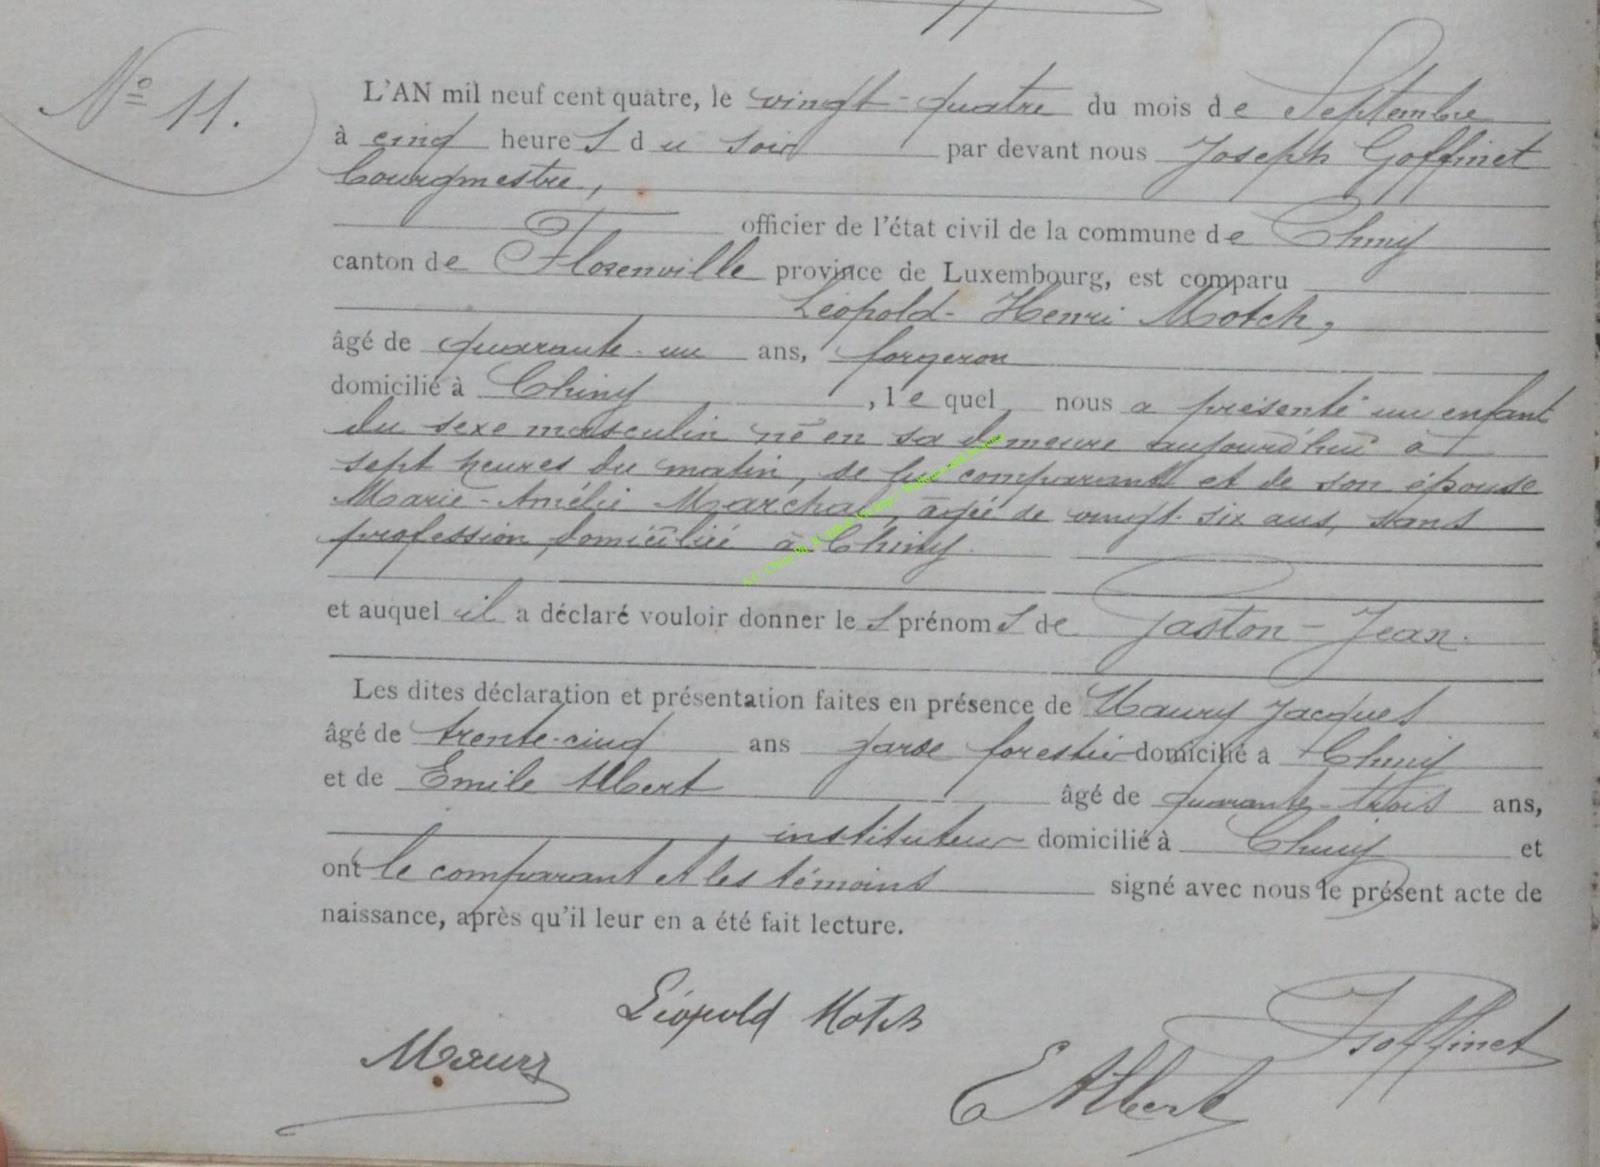 N° 11.
L'AN mil neuf cent quatre, le vingt-quatre du mois de Septembre
à cinq heures du soir par devant nous Joseph Goffinet
bourgmestre,
officier de l'état civil de la commune de Chiny
canton de Florenville province de Luxembourg, est comparu
Léopold-Henri Motch,
âgé de quarante-un ans, forgeron
domicilié à Chiny, lequel nous a présenté un enfant
du sexe masculin né en sa demeure aujourd'hui à
sept heures du matin, de lui comparant et de son épouse
Marie-Amélie Maréchal, âgée de vingt-six ans, sans
profession, domiciliée à Chiny.
et auquel il a déclaré vouloir donner les prénoms de Gaston-Jean.
Les dites déclaration et présentation faites en présence de Maury Jacques
âgé de trente-cinq ans garde forestier domicilié à Chiny
et de Emile Albert âgé de quarante-trois ans,
instituteur domicilié à Chiny et
ont le comparant et les témoins signé avec nous le présent acte de
naissance, après qu'il leur en a été fait lecture.
Léopold Motch
JGoffinet
Maury
EAlbert